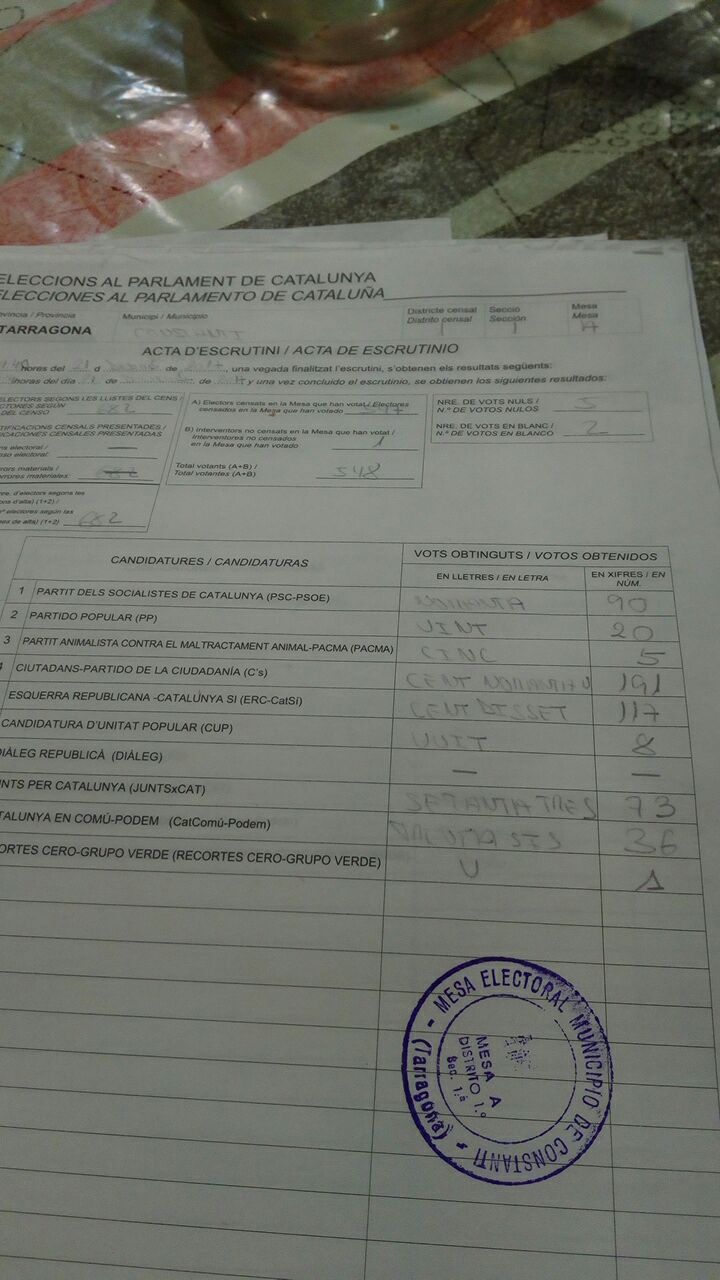 ELECCIONS AL PARLAMENT DE CATALUNYA
ELECCIONES AL PARLAMENTO DE CATALUÑA
Província / Provincia Municipi / Municipio Districte censal Distrito censal Secció Sección Mesa Mesa
TARRAGONA CONSTANTÍ 1 1 A
ACTA D'ESCRUTINI / ACTA DE ESCRUTINIO
hores del 21 d de 2017, una vegada finalitzat l'escrutini, s'obtenen els resultats següents:
horas del día 21 de de 2017 y una vez concluido el escrutinio, se obtienen los siguientes resultados:
ELECTORS SEGONS LES LLISTES DEL CENS /
ECTORES SEGÚN
DEL CENSO 682
TIFICACIONS CENSALS PRESENTADES /
ICACIONES CENSALES PRESENTADAS
ns electoral /
nso electoral:
rrors materials /
rrores materiales:
nre. d'electors segons les
ons d'alta) (1+2) /
nº electores según las
nes de alta) (1+2) 682
A) Electors censats en la Mesa que han votat / Electores
censados en la Mesa que han votado 547
B) Interventors no censats en la Mesa que han votat /
Interventores no censados
en la Mesa que han votado 1
Total votants (A+B) /
Total votantes (A+B) 548
NRE. DE VOTS NULS /
N.º DE VOTOS NULOS 5
NRE. DE VOTS EN BLANC /
N.º DE VOTOS EN BLANCO 2
CANDIDATURES / CANDIDATURAS VOTS OBTINGUTS / VOTOS OBTENIDOS
EN LLETRES / EN LETRA EN XIFRES / EN NÚM.
1 PARTIT DELS SOCIALISTES DE CATALUNYA (PSC-PSOE) NORANTA 90
2 PARTIDO POPULAR (PP) VINT 20
3 PARTIT ANIMALISTA CONTRA EL MALTRACTAMENT ANIMAL-PACMA (PACMA) CINC 5
4 CIUTADANS-PARTIDO DE LA CIUDADANÍA (C's) CENT NORANTA U 191
ESQUERRA REPUBLICANA -CATALUNYA SI (ERC-CatSí) CENT DISSET 117
CANDIDATURA D'UNITAT POPULAR (CUP) VUIT 8
DIÀLEG REPUBLICÀ (DIÀLEG) — —
NTS PER CATALUNYA (JUNTSxCAT) SETANTA TRES 73
TALUNYA EN COMÚ-PODEM (CatComú-Podem) SIS 36
ORTES CERO-GRUPO VERDE (RECORTES CERO-GRUPO VERDE) U 1
- MESA ELECTORAL MUNICIPIO DE CONSTANTI -
(Tarragona)
MESA A
DISTRITO 1.º
Sec. 1.ª